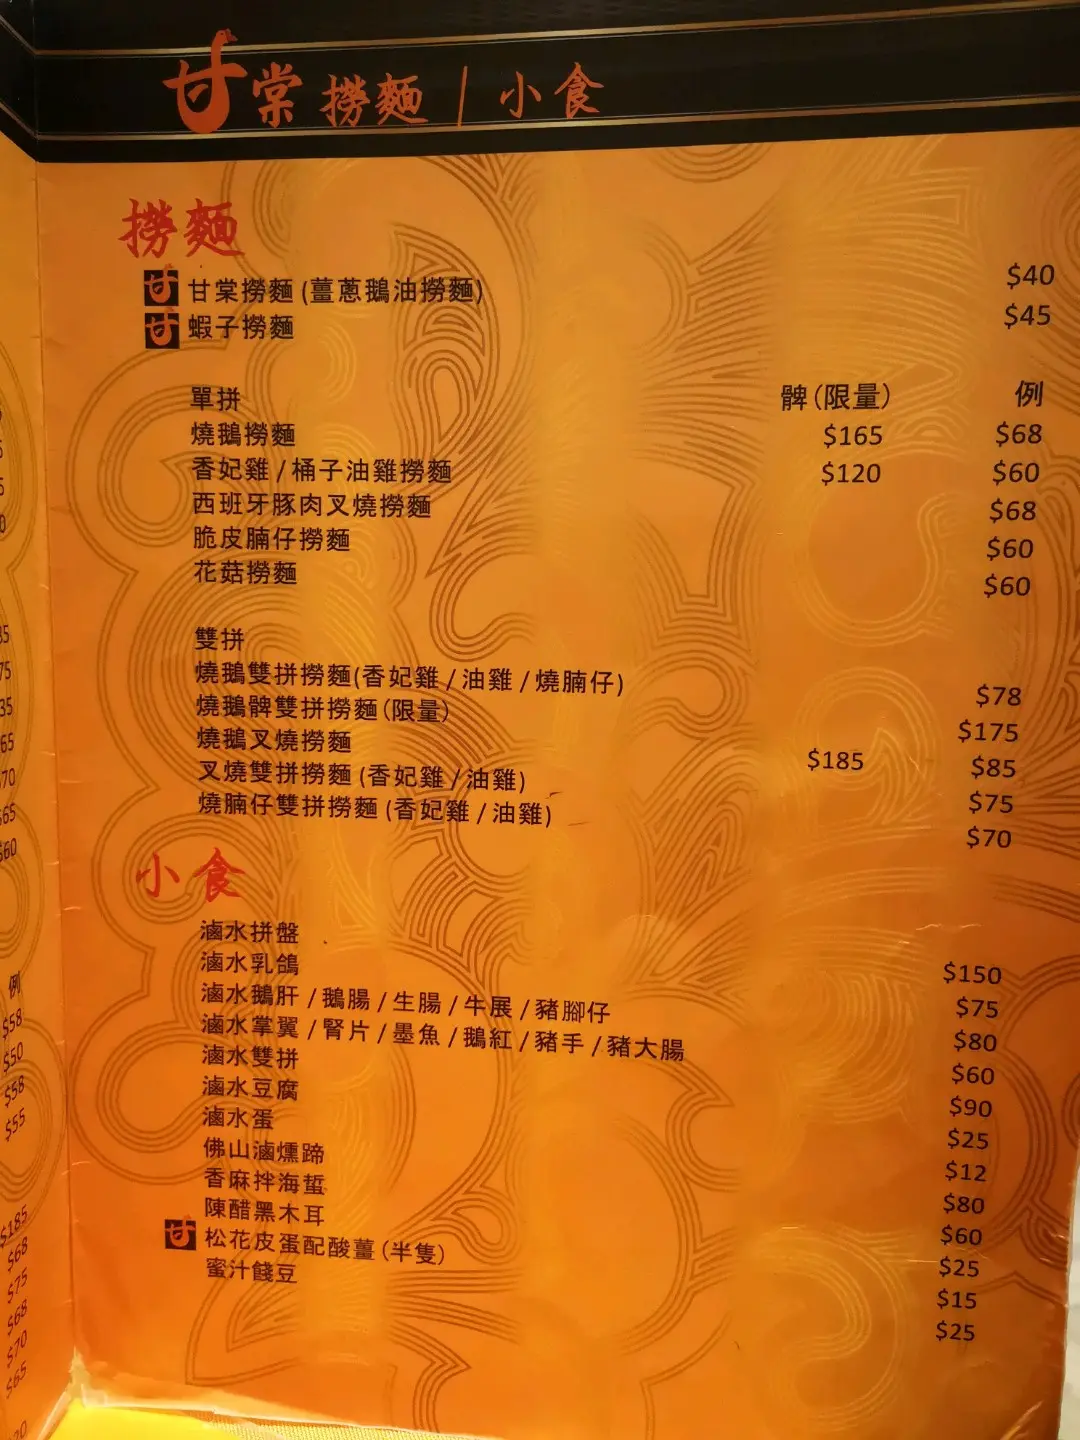 甘棠撈麵 | 小食
撈麵
甘 甘棠撈麵 (薑蔥鵝油撈麵) $40
甘 蝦子撈麵 $45
單拼 髀 (限量) 例
燒鵝撈麵 $165 $68
香妃雞 / 桶子油雞撈麵 $120 $60
西班牙豚肉叉燒撈麵 $68
脆皮腩仔撈麵 $60
花菇撈麵 $60
雙拼
燒鵝雙拼撈麵(香妃雞 / 油雞 / 燒腩仔) $78
燒鵝髀雙拼撈麵 (限量) $175
燒鵝叉燒撈麵 $185 $85
叉燒雙拼撈麵 (香妃雞 / 油雞) $75
燒腩仔雙拼撈麵 (香妃雞 / 油雞) $70
小食
滷水拼盤 $150
滷水乳鴿 $75
滷水鵝肝 / 鵝腸 / 生腸 / 牛展 / 豬腳仔 $80
滷水掌翼 / 腎片 / 墨魚 / 鵝紅 / 豬手 / 豬大腸 $60
滷水雙拼 $90
滷水豆腐 $25
滷水蛋 $12
佛山滷燻蹄 $80
香麻拌海蜇 $60
陳醋黑木耳 $25
甘 松花皮蛋配酸薑 (半隻) $15
蜜汁餞豆 $25
例
$58
$50
$58
$55
$185
$68
$75
$68
$70
$65